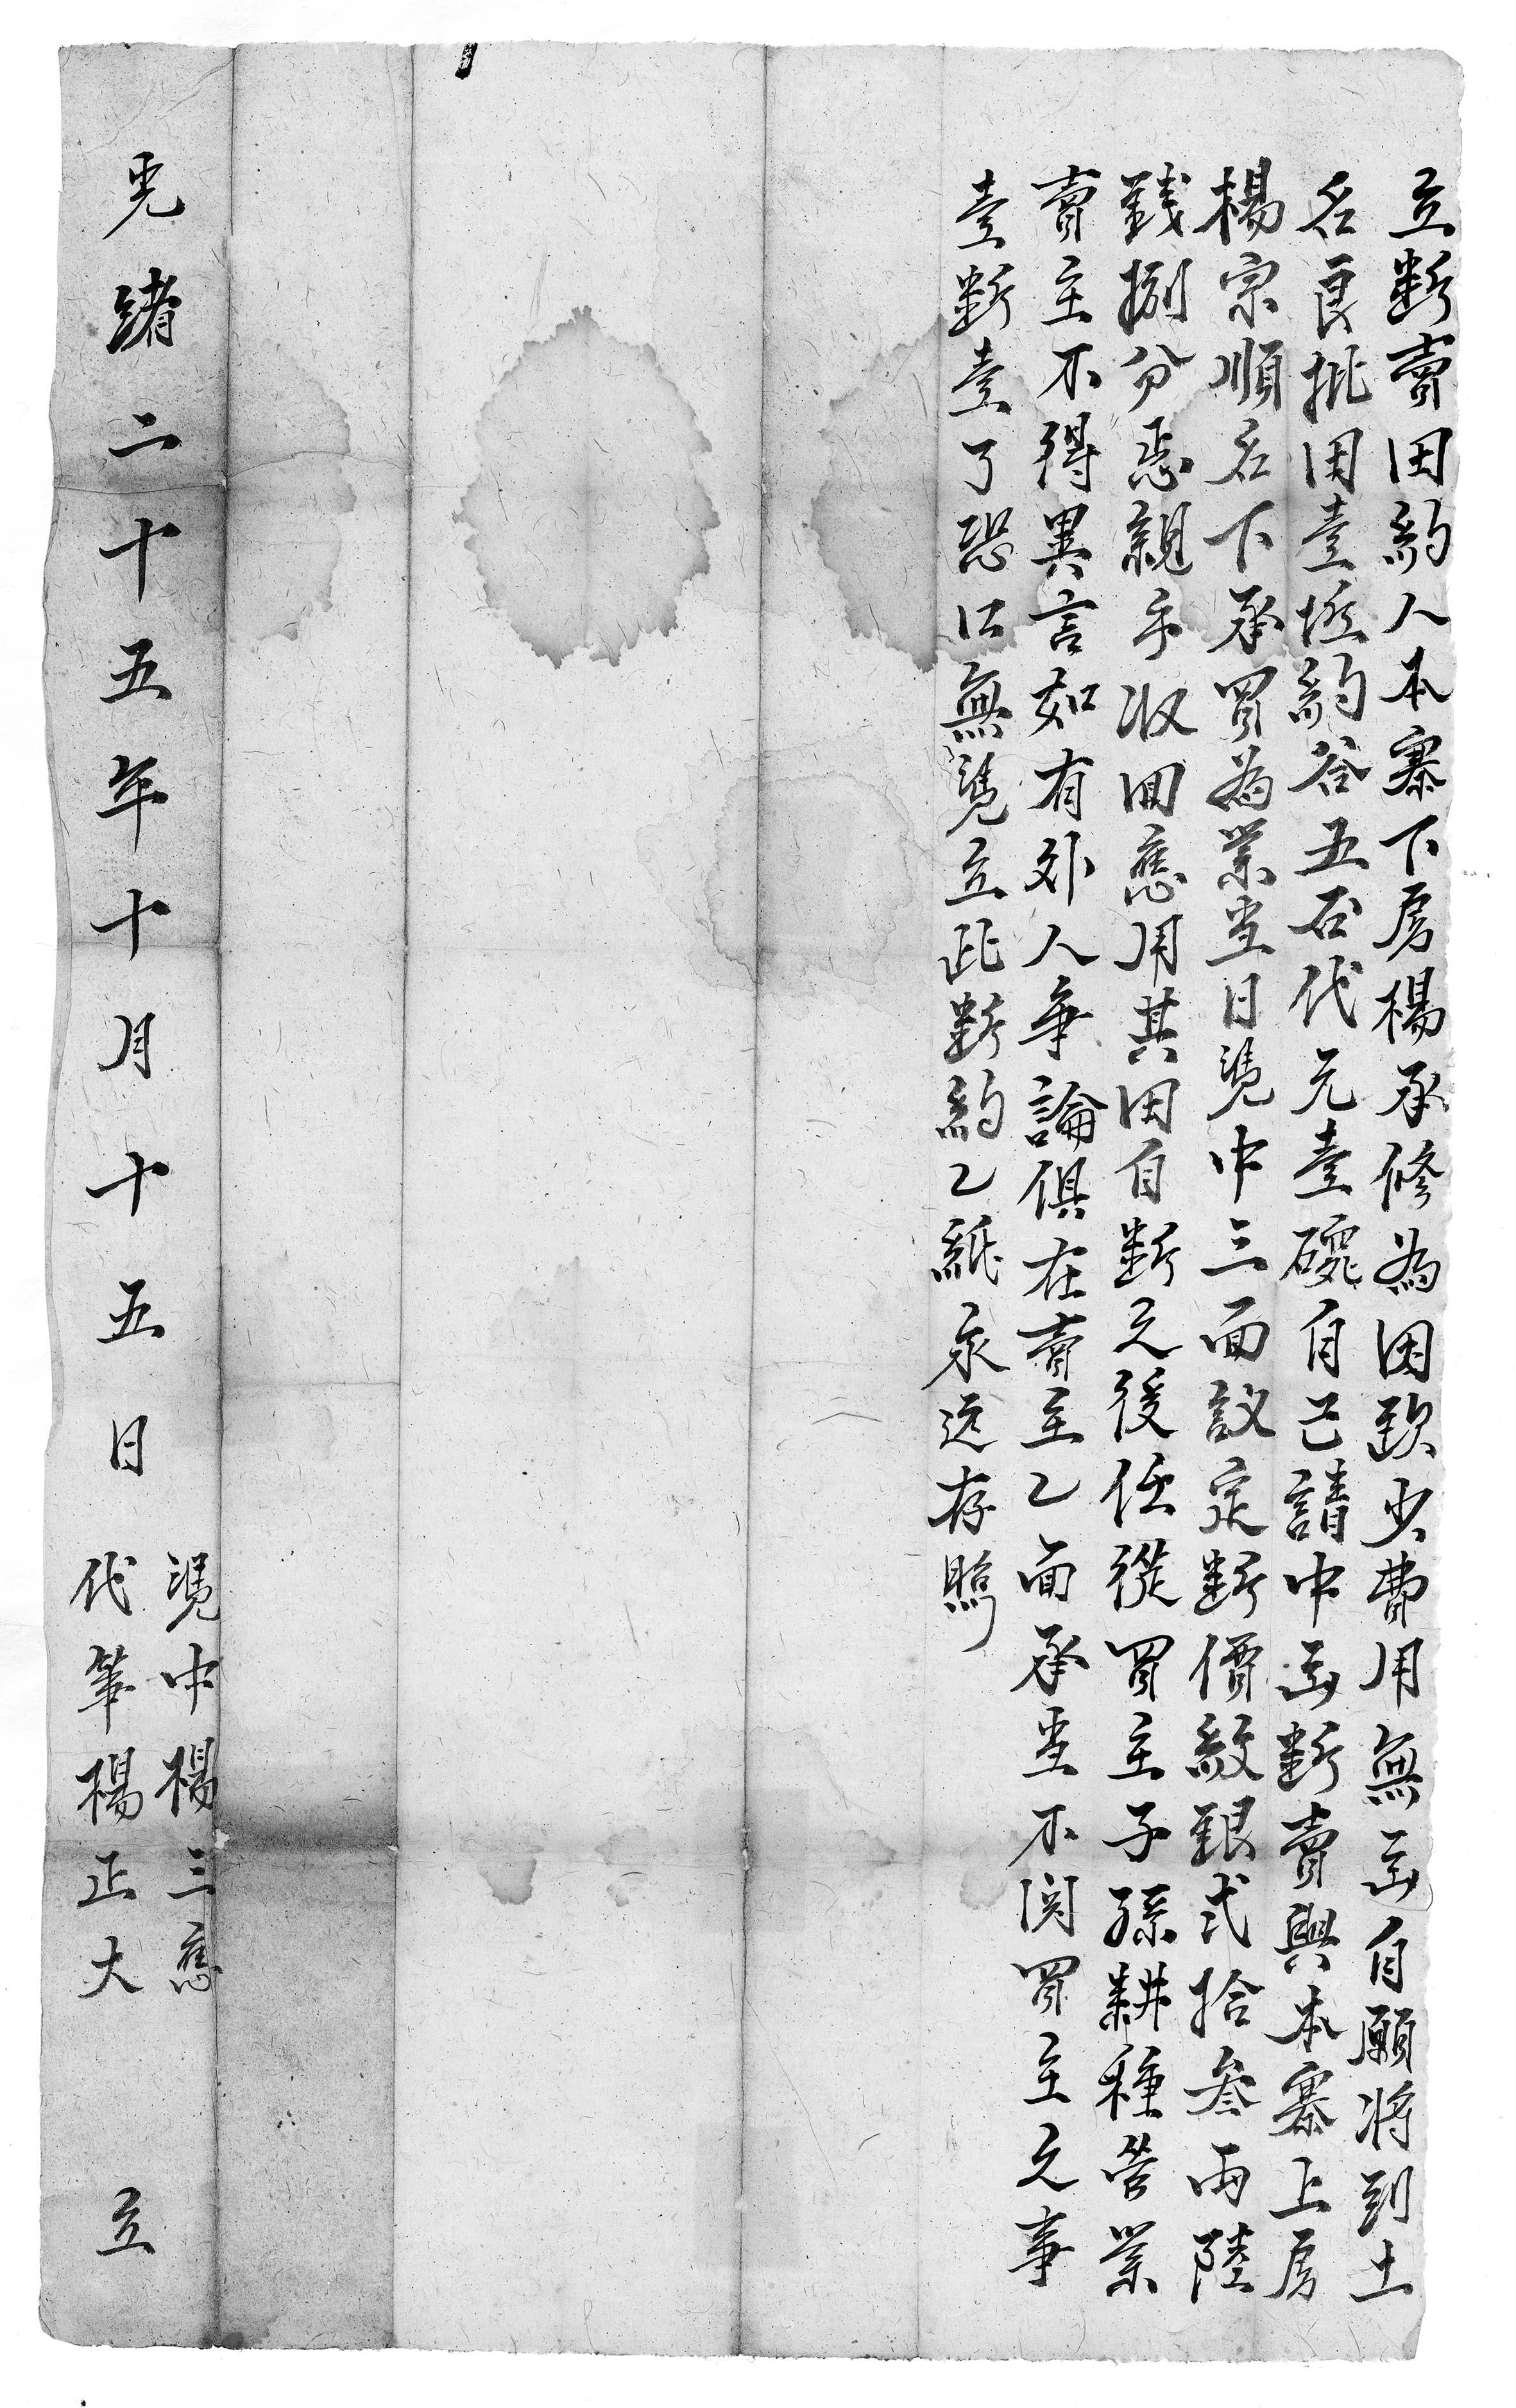 立断賣田約人本寨下房楊承修為因缺少費用無出自願將到土
名良挑田壹坵約谷五石代元壹礶自己請中出断賣與本寨上房
楊宗順名下承買為業當日凴中三面議定断價紋銀弍拾叁両陸
銭捌分悉親手收囬應用其田自断之後任從買主子孫耕種管業
賣主不得異言如有外人爭論俱在賣主乙面承當不関買主之事
壹断壹了恐口無凴立此断約乙紙永远存照
凴中楊三應
代筆楊正大
光緒二十五年十月十五日立